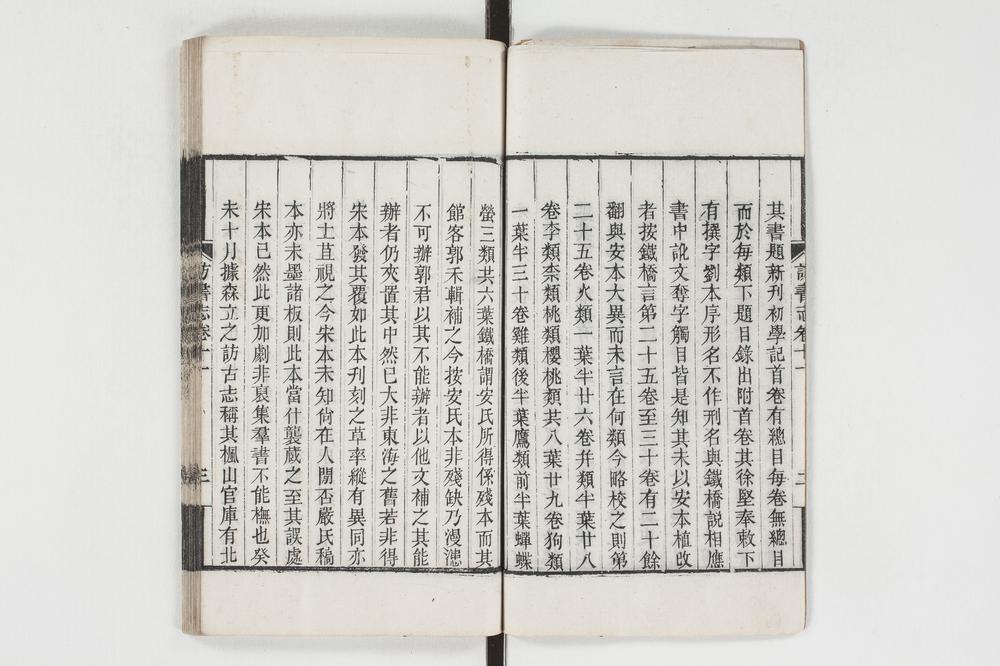 其書題新刊初學記首卷有總目每卷無總目
而於每類下題目錄出附首卷其徐堅奉敕下
有撰字劉本序形名不作刑名與鐵橋說相應
書中訛文奪字觸目皆是知其未以安本植改
者按鐵橋言第二十五卷至三十卷有二十餘
翻與安本大異而未言在何類今略校之則第
二十五卷火類一葉半廿六卷弁類半葉廿八
卷李類柰類桃類櫻桃類共八葉廿九卷狗類
一葉半三十卷雞類後半葉鷹類前半葉蟬蝶
訪書志卷十一
二
螢三類共六葉鐵橋謂安氏所得係殘本而其
館客郭禾輯補之今按安氏本非殘缺乃漫漶
不可辦郭君以其不能辦者以他文補之其能
辦者仍夾置其中然已大非東海之舊若非得
宋本發其覆如此本刋刻之草率縱有異同亦
將土苴視之今宋本未知尙在人閒否嚴氏稿
本亦未墨諸板則此本當什襲蔵之至其誤處
宋本已然此更加劇非裒集羣書不能橅也癸
未十月據森立之訪古志稱其楓山官庫有北
訪書志卷十一
三